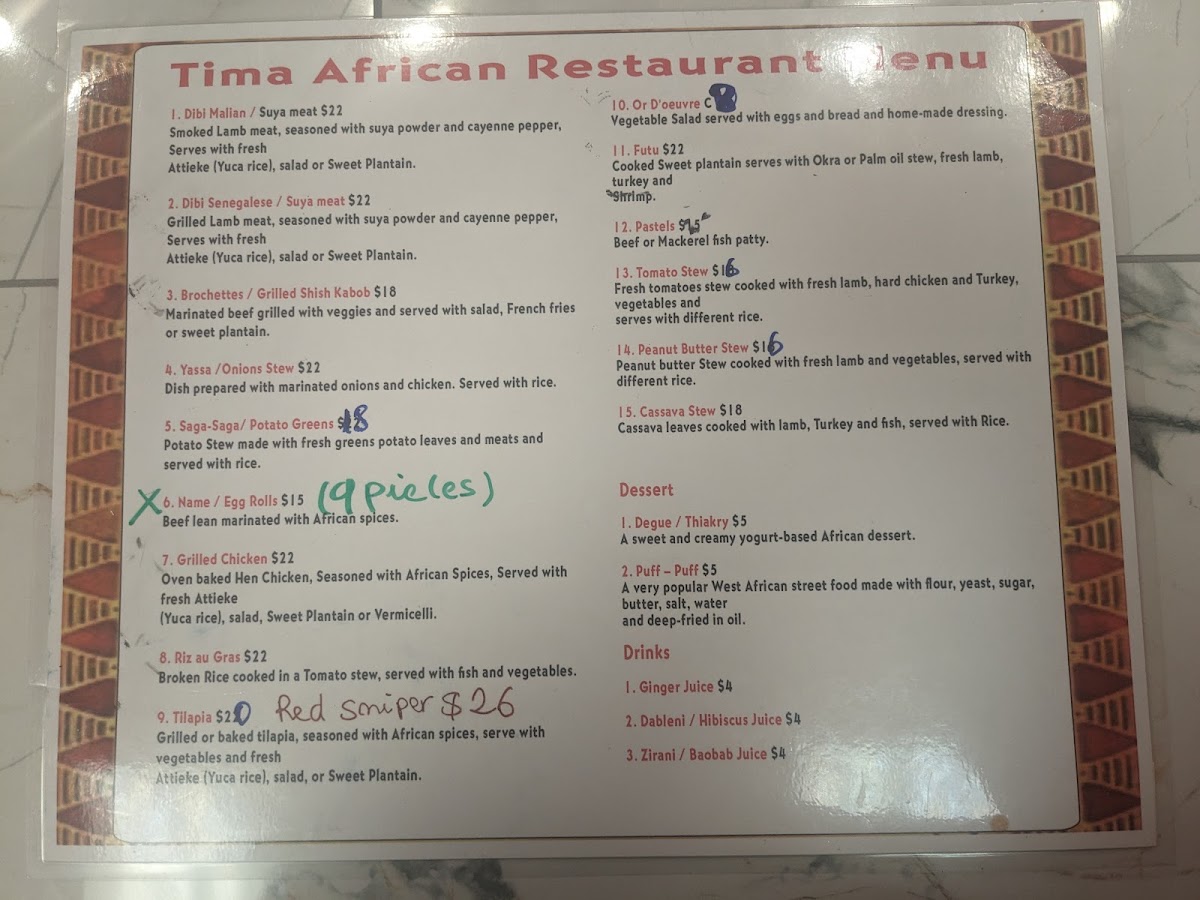 Tima African Restaurant Menu
1. Dibi Malian / Suya meat $22
Smoked Lamb meat, seasoned with suya powder and cayenne pepper,
Serves with fresh
Attieke (Yuca rice), salad or Sweet Plantain.
2. Dibi Senegalese / Suya meat $22
Grilled Lamb meat, seasoned with suya powder and cayenne pepper,
Serves with fresh
Attieke (Yuca rice), salad or Sweet Plantain.
3. Brochettes / Grilled Shish Kabob $18
Marinated beef grilled with veggies and served with salad, French fries
or sweet plantain.
4. Yassa /Onions Stew $22
Dish prepared with marinated onions and chicken. Served with rice.
5. Saga-Saga/ Potato Greens $18
Potato Stew made with fresh greens potato leaves and meats and
served with rice.
X 6. Name / Egg Rolls $15 (9 pieces)
Beef lean marinated with African spices.
7. Grilled Chicken $22
Oven baked Hen Chicken, Seasoned with African Spices, Served with
fresh Attieke
(Yuca rice), salad, Sweet Plantain or Vermicelli.
8. Riz au Gras $22
Broken Rice cooked in a Tomato stew, served with fish and vegetables.
9. Tilapia $20 Red sniper $26
Grilled or baked tilapia, seasoned with African spices, serve with
vegetables and fresh
Attieke (Yuca rice), salad, or Sweet Plantain.
10. Or D'oeuvre
Vegetable Salad served with eggs and bread and home-made dressing.
11. Futu $22
Cooked Sweet plantain serves with Okra or Palm oil stew, fresh lamb,
turkey and
Shrimp.
12. Pastels
Beef or Mackerel fish patty.
13. Tomato Stew $16
Fresh tomatoes stew cooked with fresh lamb, hard chicken and Turkey,
vegetables and
serves with different rice.
14. Peanut Butter Stew $16
Peanut butter Stew cooked with fresh lamb and vegetables, served with
different rice.
15. Cassava Stew $18
Cassava leaves cooked with lamb, Turkey and fish, served with Rice.
Dessert
1. Degue / Thiakry $5
A sweet and creamy yogurt-based African dessert.
2. Puff – Puff $5
A very popular West African street food made with flour, yeast, sugar,
butter, salt, water
and deep-fried in oil.
Drinks
1. Ginger Juice $4
2. Dableni / Hibiscus Juice $4
3. Zirani / Baobab Juice $4